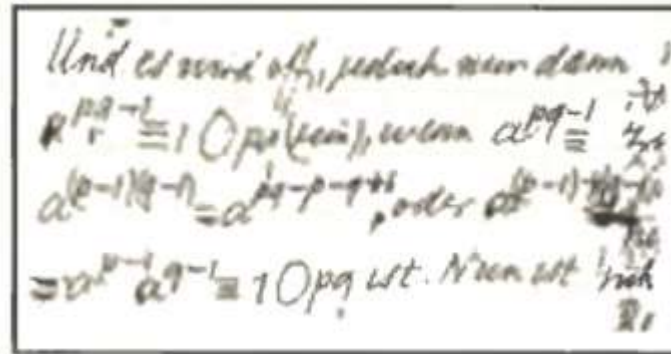 Und es wird oft, jedoch nur dann
a^{pq-1} ≡ 1 O pq (sein), wenn a^{pq-1} ≡
a^{(p-1)(q-1)} = a^{pq-p-q+1}, oder a^{(p-1)+(q-1)}
= a^{p-1} a^{q-1} ≡ 1 O pq ist. Nun ist